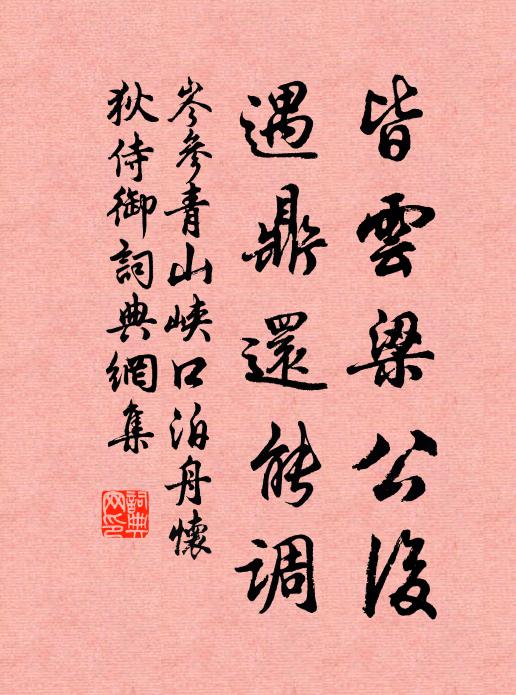 皆雲梁公後
遇鼎還能調
岑參青山峽口泊舟懷
狄侍御詞典網集
詞典網印